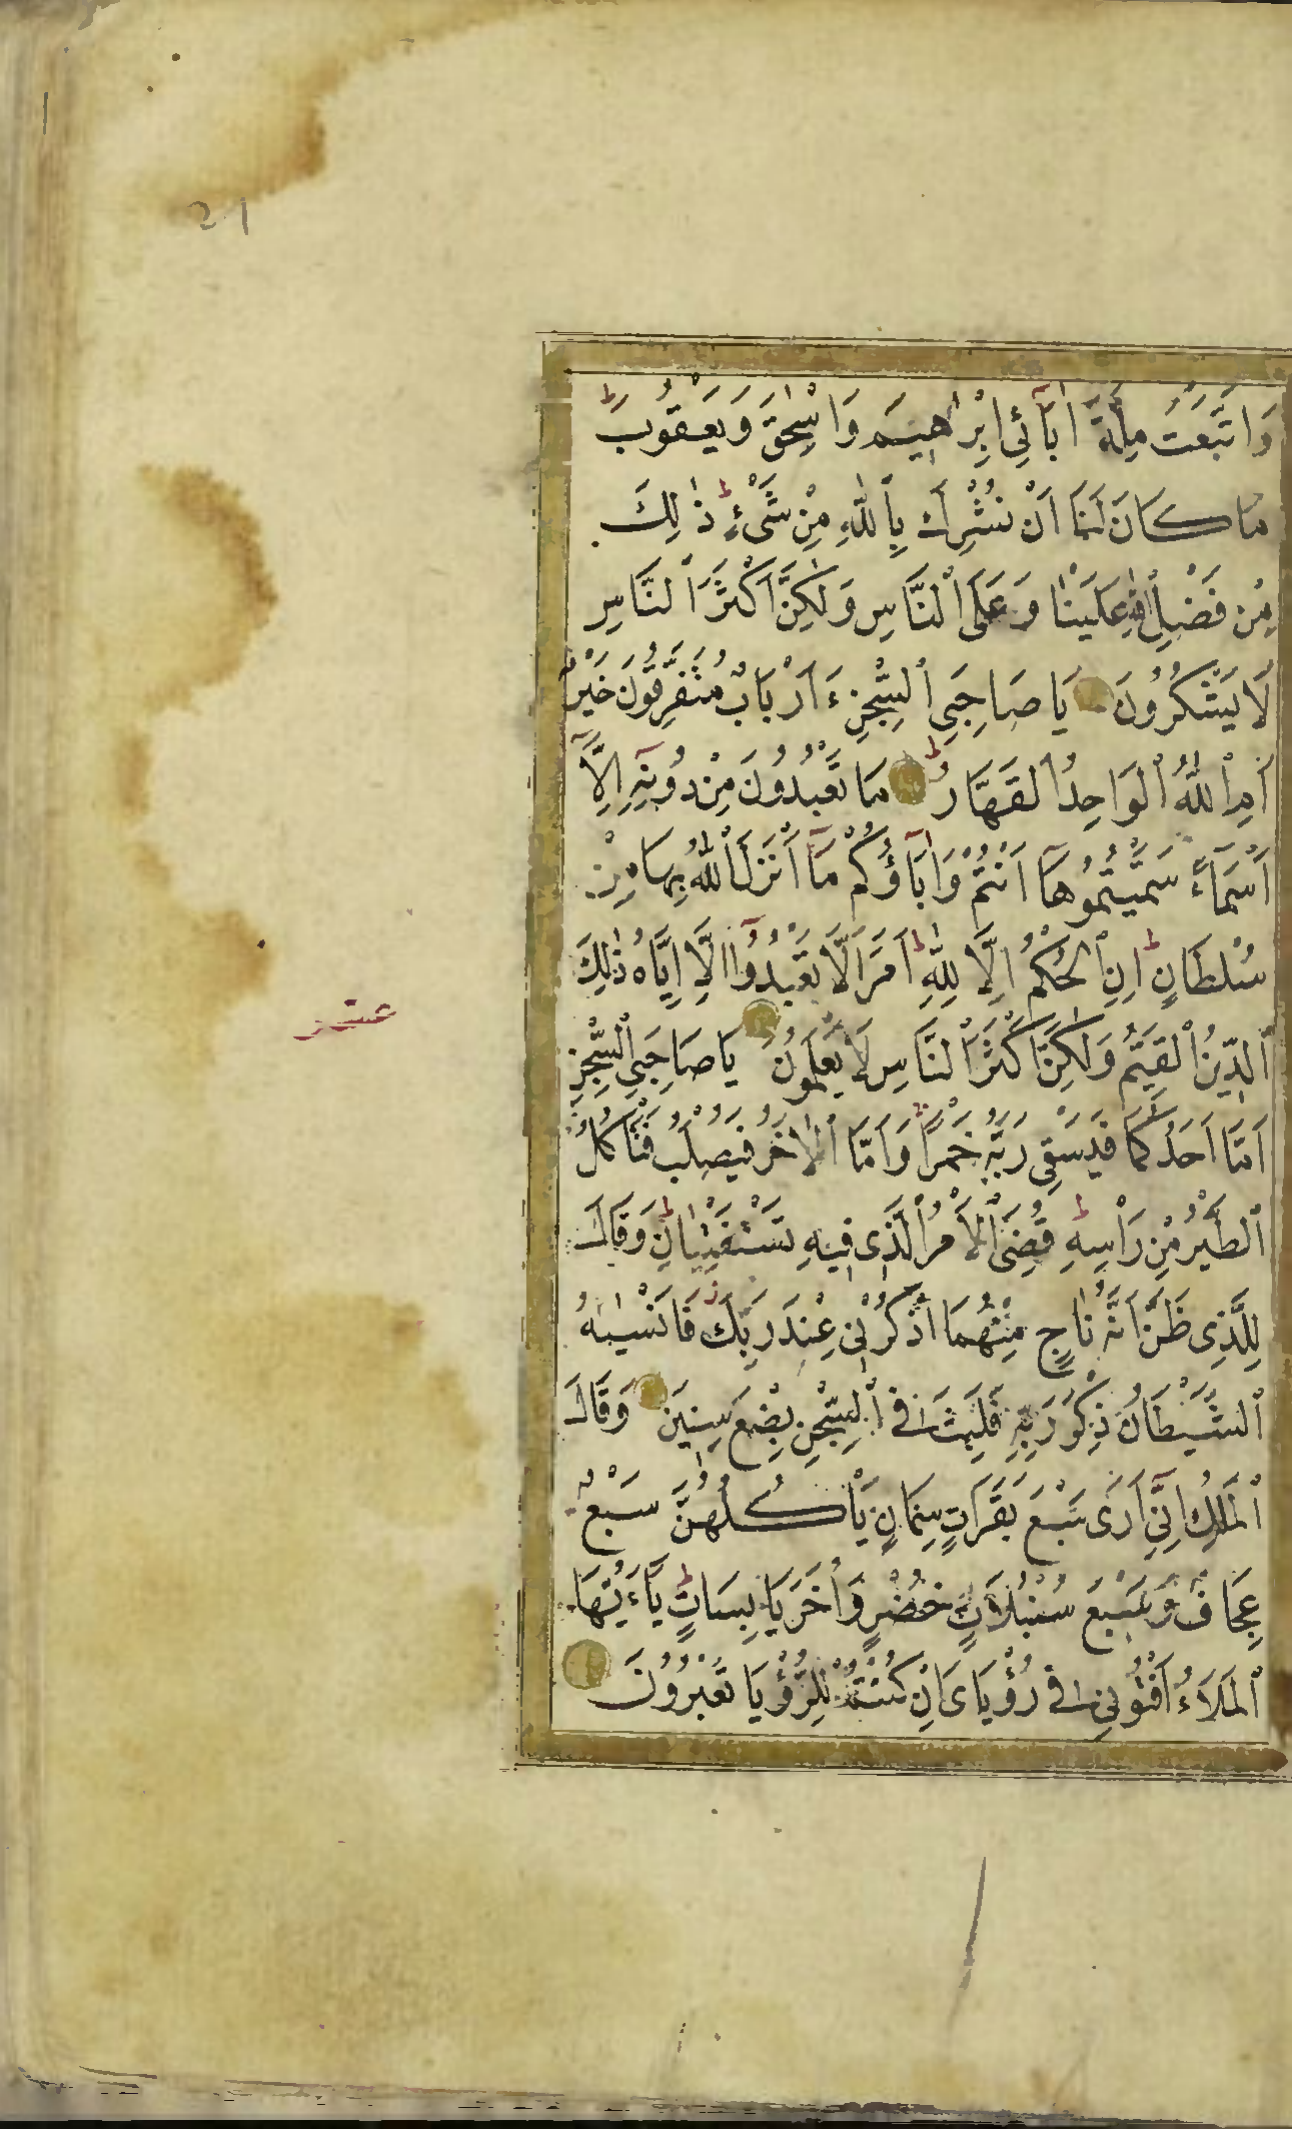 21
وَاتَّبَعْتُ مِلَّةَ اٰبَآئِي اِبْرٰاهِيمَ وَاِسْحٰقَ وَيَعْقُوبَ ط
مَا كَانَ لَنَا اَنْ نُشْرِكَ بِاللّٰهِ مِنْ شَىْءٍ ط ذٰلِكَ
مِنْ فَضْلِ اللّٰهِ عَلَيْنَا وَعَلَى النَّاسِ وَلٰكِنَّ اَكْثَرَ النَّاسِ
لَا يَشْكُرُونَ يَا صَاحِبَيِ السِّجْنِ ءَاَرْبَابٌ مُتَفَرِّقُونَ خَيْرٌ
اَمِ اللّٰهُ الْوَاحِدُ الْقَهَّارُ ط مَا تَعْبُدُونَ مِنْ دُونِهٓ اِلَّآ
اَسْمَآءً سَمَّيْتُمُوهَآ اَنْتُمْ وَاٰبَآؤُكُمْ مَآ اَنْزَلَ اللّٰهُ بِهَا مِنْ
سُلْطَانٍ ط اِنِ الْحُكْمُ اِلَّا لِلّٰهِ ط اَمَرَ اَلَّا تَعْبُدُوٓا اِلَّآ اِيَّاهُ ذٰلِكَ
الدِّينُ الْقَيِّمُ وَلٰكِنَّ اَكْثَرَ النَّاسِ لَا يَعْلَمُونَ يَا صَاحِبَيِ السِّجْنِ
عشر
اَمَّا اَحَدُكُمَا فَيَسْقِى رَبَّهُ خَمْرًا وَاَمَّا الْاٰخَرُ فَيُصْلَبُ فَتَأْكُلُ
الطَّيْرُ مِنْ رَاْسِهِ ط قُضِىَ الْاَمْرُ الَّذِى فِيهِ تَسْتَفْتِيَانِ ط وَقَالَ
لِلَّذِى ظَنَّ اَنَّهُ نَاجٍ مِنْهُمَا اذْكُرْنِى عِنْدَ رَبِّكَ ز فَاَنْسٰيهُ
الشَّيْطَانُ ذِكْرَ رَبِّهِ فَلَبِثَ فِى السِّجْنِ بِضْعَ سِنِينَ وَقَالَ
الْمَلِكُ اِنِّىٓ اَرَى سَبْعَ بَقَرَاتٍ سِمَانٍ يَأْكُلُهُنَّ سَبْعٌ
عِجَافٌ وَسَبْعَ سُنْبُلَاتٍ خُضْرٍ وَاُخَرَ يَابِسَاتٍ ط يَآءَيُّهَا
الْمَلَاُ اَفْتُونِى فِى رُؤْيَاىَ اِنْ كُنْتُمْ لِلرُّؤْيَا تَعْبُرُونَ